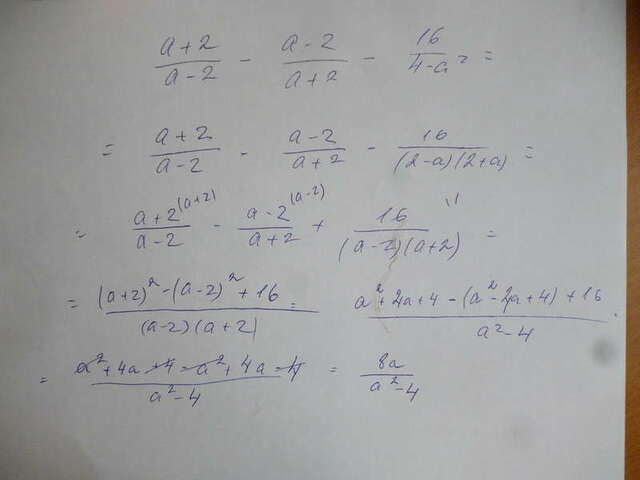 (a+2)/(a-2) - (a-2)/(a+2) - 16/(4-a²) =
= (a+2)/(a-2) - (a-2)/(a+2) - 16/((2-a)(2+a)) =
= (a+2)/(a-2) ^(a+2) - (a-2)/(a+2) ^(a-2) + 16/((a-2)(a+2)) ^1) =
= ((a+2)² - (a-2)² + 16)/((a-2)(a+2)) = (a²+2a+4 - (a²-2a+4) + 16)/(a²-4) .
= (a²+4a+4-a²+4a-4)/(a²-4) = 8a/(a²-4)